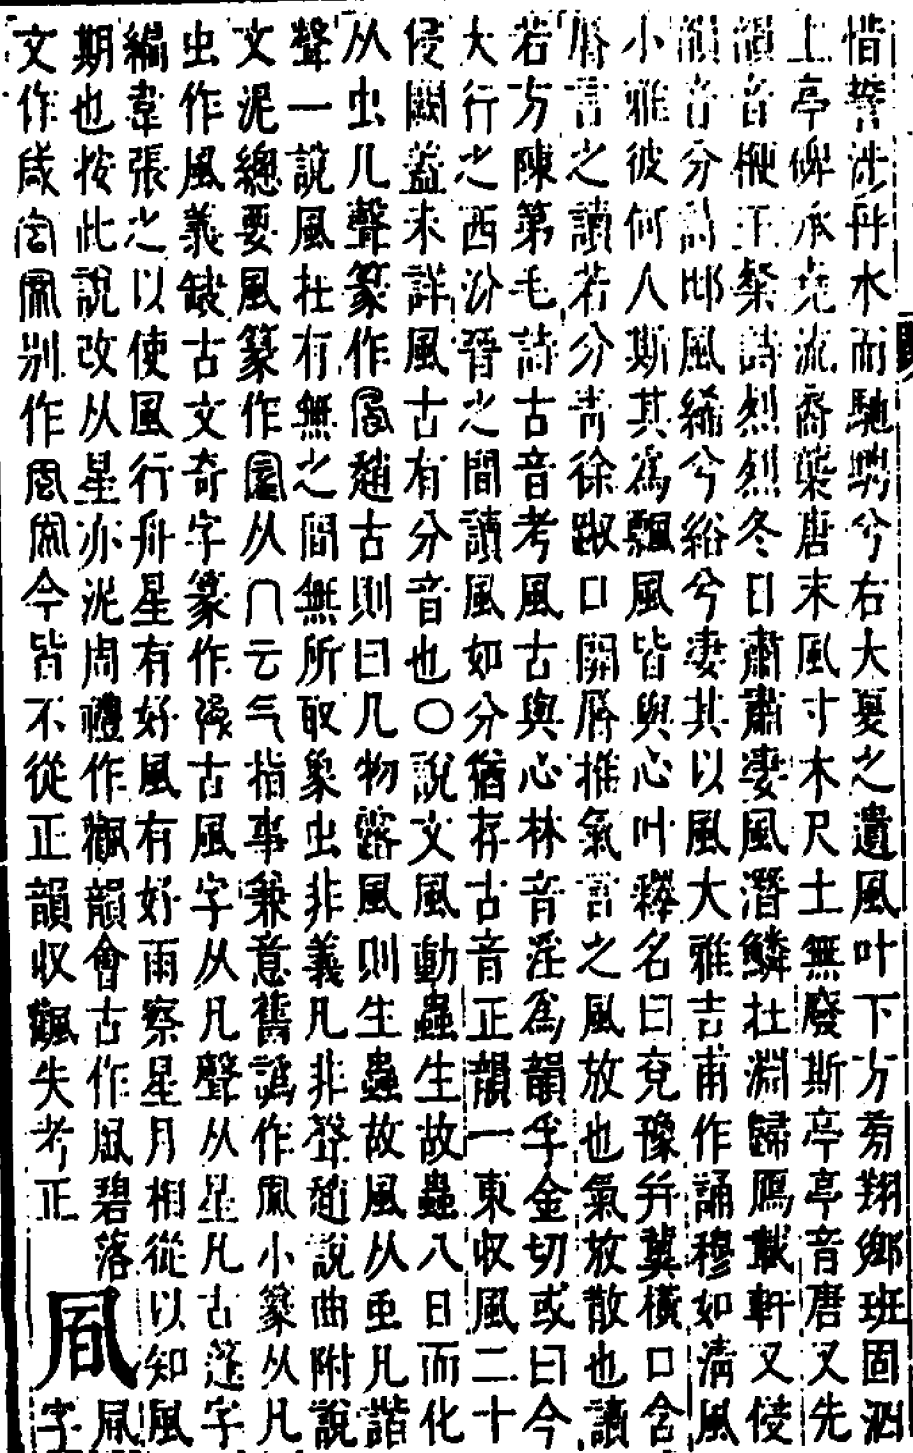 惜誓涉丹水而馳騁兮右大夏之遺風叶下方芴翔鄉班固泗
上亭碑承尭流裔𦭘唐末風寸木尺土無廢斯亭亭音唐又先
韻音梗王粲詩烈烈冬日肅肅淒風潛鱗在淵歸鴈載軒又侵
韻音分詩邶風絺兮綌兮淒其以風大雅吉甫作誦穆如清風
小雅彼何人斯其爲飄風皆與心叶釋名曰兗豫幷冀橫口含
脣言之讀若分靑徐踧口開脣推氣言之風放也氣放散也讀
若方陳第毛詩古音考風古與心林音淫爲韻孚金切或曰今
大行之西汾晉之間讀風如分猶存古音正韻一東收風二十
侵闕蓋未詳風古有分音也○說文風動蟲生故蟲八日而化
从虫凡聲篆作𠙊趙古則曰凡物露風則生蟲故風从虫凡諧
聲一說風在有無之間無所取象虫非義凡非聲趙說曲附說
文泥總要風篆作𠙊从冂云气指事兼意舊譌作𠙊小篆从凡
虫作風義缺古文奇字篆作古風字从凡聲从星凡古蓬字
編韋張之以使風行舟星有好風有好雨察星月相從以知風
期也按此說改从星亦泥周禮作飌韻會古作凬碧落𠙊
文作𠙊別作今皆不從正韻收飌失考正 𠙊 字